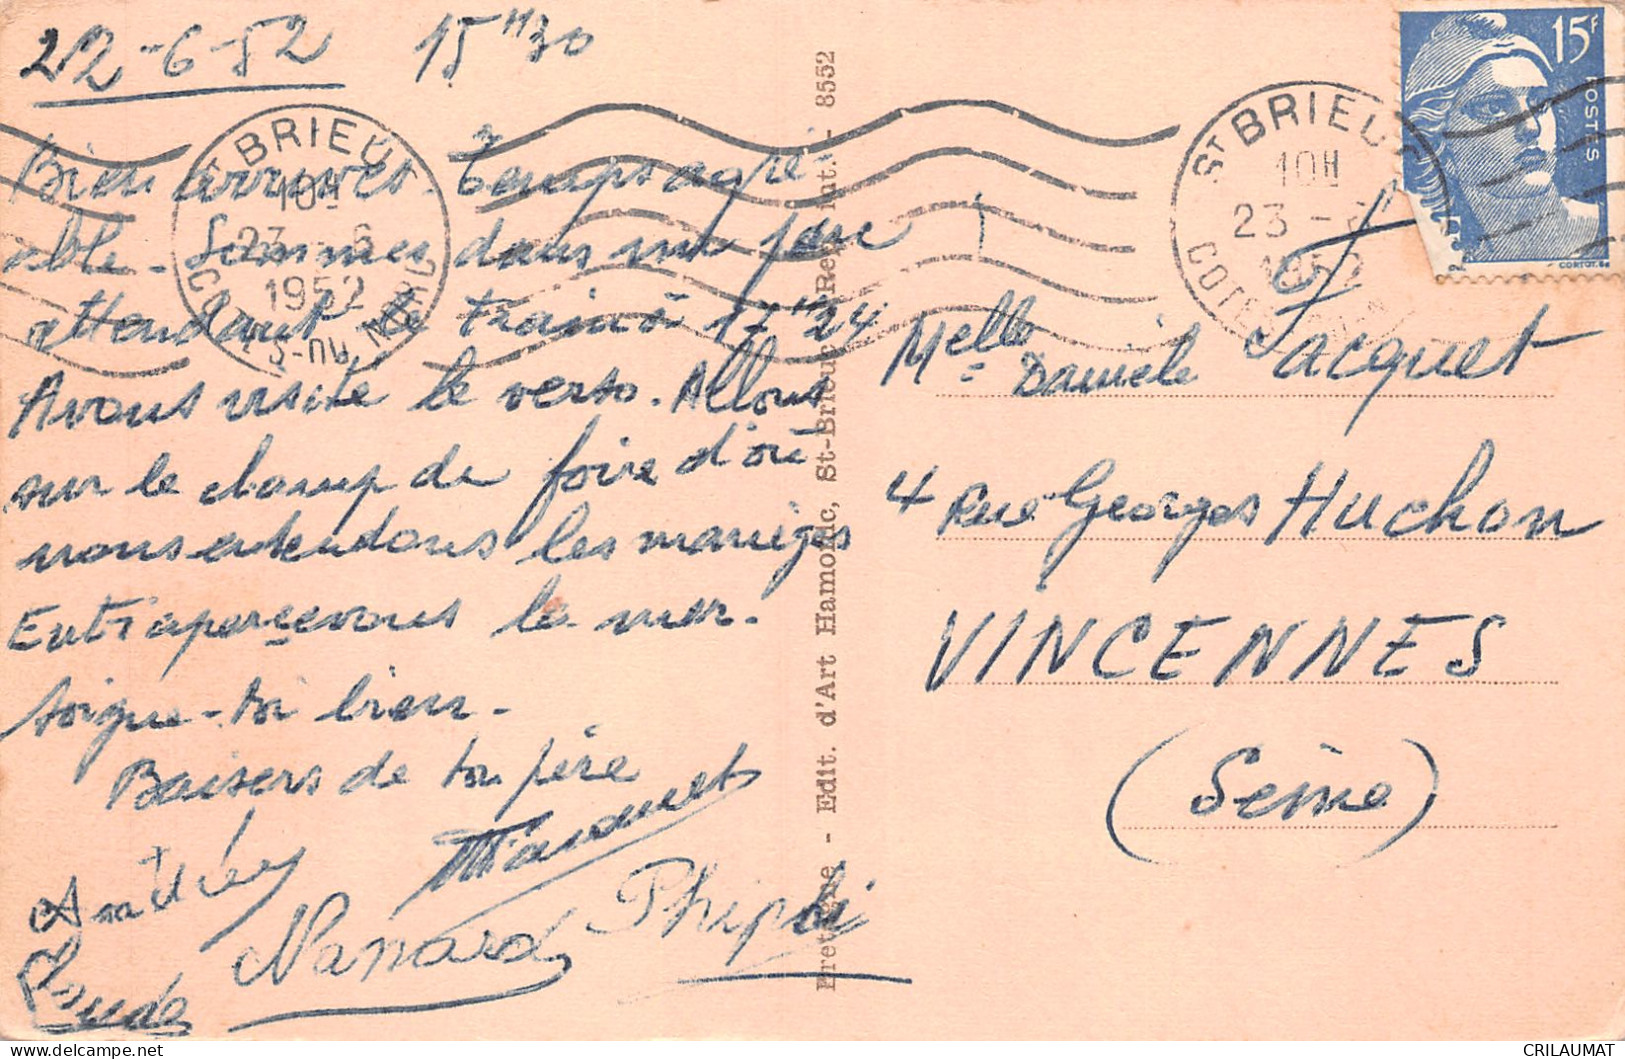 22-6-52 15H30
Bien arrivés. Temps agré
able. Sommes dans un parc
attendant le train à 17H24
Avons visité le verso. Allons
sur le champ de foire d'où
nous entendons les manèges
Entr'aperçevons la mer.
Soigne-toi bien.
Baisers de ton père
Andrée
Nanard
Phiphi
Bretagne - Edit. d'Art Hamonic, St-Brieuc - Rep. int. - 8552
ST BRIEUC
10H
23 - 6
1952
COTES-DU-NORD
ST BRIEUC
10H
23 - 6
1952
COTES-DU-N
15F
POSTES
CORTOT.
Melle Danièle Jacquet
4 Rue Georges Huchon
VINCENNES
(Seine)
CRILAUMAT